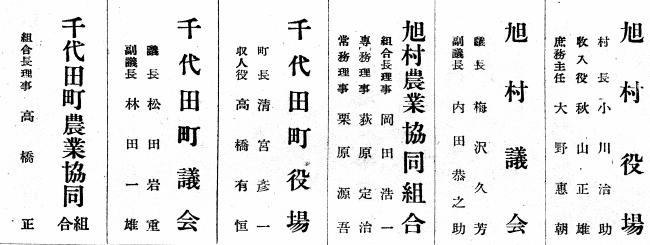 旭村役場
村長 小川治助
収入役 秋山正雄
庶務主任 大野惠朝
旭村議会
議長 梅沢久芳
副議長 内田恭之助
旭村農業協同組合
組合長理事 岡田浩一
専務理事 荻原定治
常務理事 栗原源吾
千代田町役場
町長 清宮彦一
収入役 高橋有恒
千代田町議会
議長 松田岩重
副議長 林田一雄
千代田町農業協同組合
組合長理事 高橋正